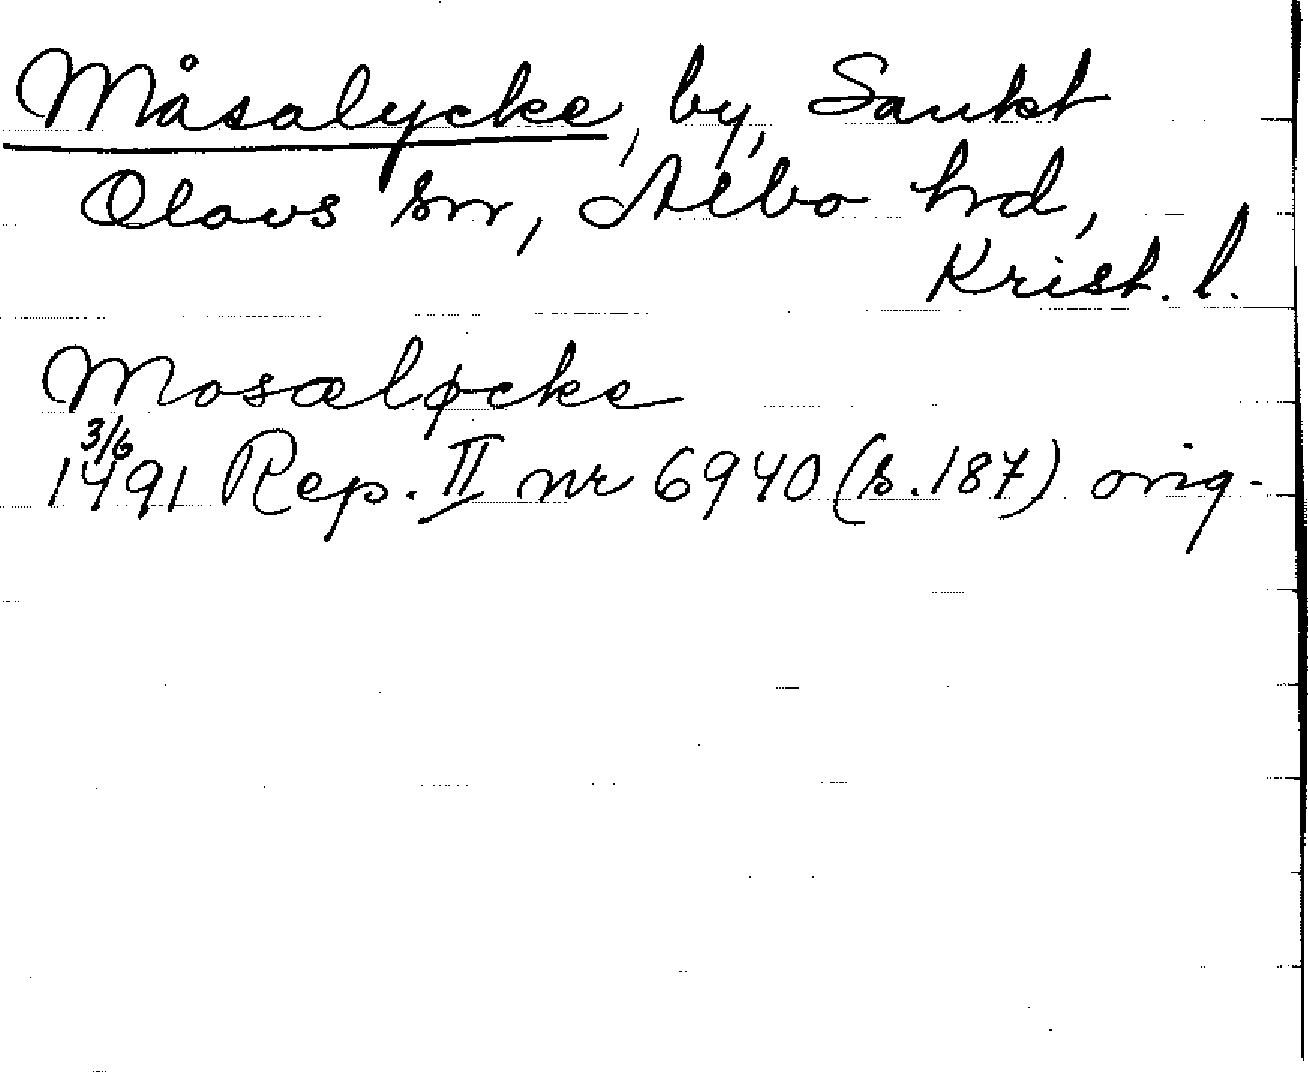 Måsalycke, by, Sankt
Olovs sn, Albo hrd,
Krist. l.
Mosæløcke
3/6
1491 Rep. II nr 6940 (s. 187) orig.